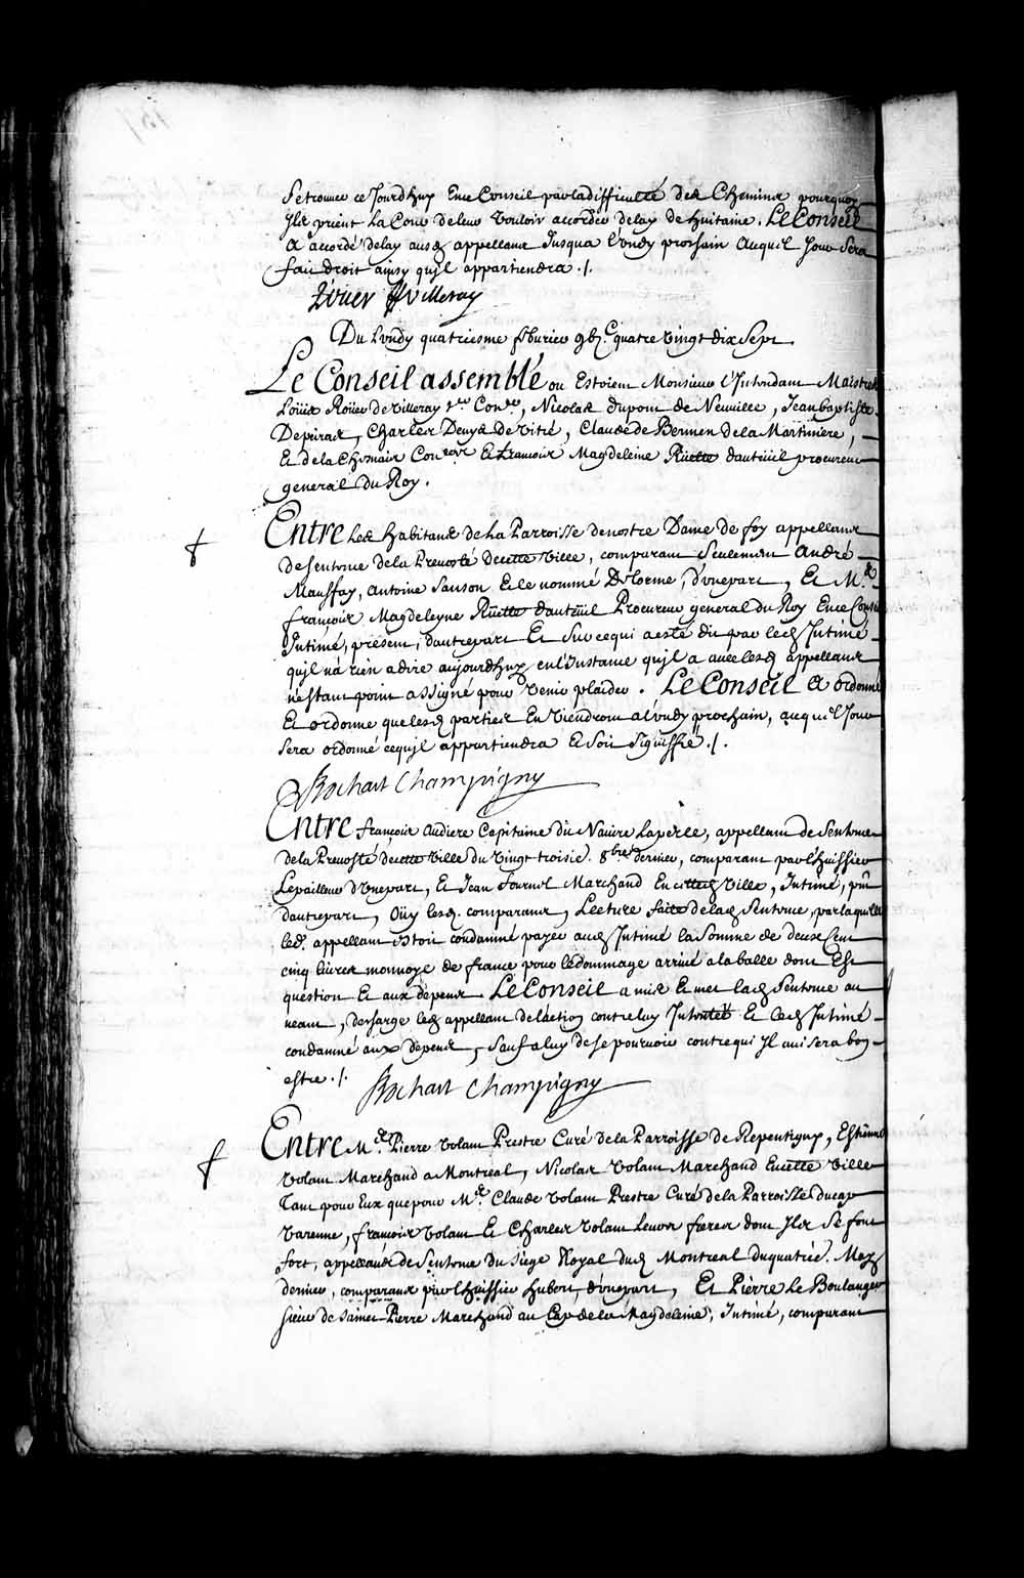 Se trouver ce Jourdhuy Ence Conseil par la difficulté des Chemins pourquoy
Ils prient La Cour de leur vouloir accorder delay de huitaine. Le Conseil
A accordé delay ausd appellans Jusqua Lundy prochain Auquel Jour Sera
fait droit ainsy quil appartiendra ./.
Roüer De Villeray
Du Lundy quatriesme febvrier gbjc. quatre vingt dix Sept.
Le Conseil assemblé ou Estoient Monsieur L'Intendant Maistres
Loüis Roüer de Villeray per Conser, Nicolas dupont de Neuville, Jean baptiste
Depeiras, Charles Denys de Vitré, Claude de Bermen de la Martiniere,
Et de la Chesnaie Coners Et francois Magdeleine Rüette dauteüil procureur
general du Roy.
Entre Les habitans de La Parroisse de nostre Dame de foy appellans
de sentence de la Prevosté de cette Ville, comparant Seulement André
Mauffay, Antoine Sanson Et le nommé Delorme, d'une part, Et Me.
francois Magdeleyne Rüette dauteüil Procureur general du Roy Ence Conseil
Intimé, present, dautre part Et Sur ce qui a esté dit par led Intimé
quil n'a rien a dire aujourdhuy en l'Instance quil a avec lesd appellans
n'estant point assigné pour venir plaider. Le Conseil A ordonné
Et ordonne que lesd parties En viendront a lundy prochain, auquel Jour
sera ordonné ce quil appartiendra Et soit signiffié ./.
Bochart Champigny
Entre francois Audiere Capitaine du Navire Laperle, appellant de Sentence
de la Prevosté de cette Ville du vingt troisie. 8bre dernier, comparant par l'huissier
Lepailleur d'une part, Et Jean fournel Marchand En cetted Ville, Intimé, pñt
dautre part, Oüy lesd. comparans, Lecture faite de lad Sentence, par laquelle
led. appellant Estoit condamné payer aud Intimé la Somme de deux Cent
cinq livres monnoye de france pour le dommage arrivé a la balle dont Est
question Et aux depens. Le Conseil a mis Et met lad Sentence au
neant, descharge led appellant de l'action contre luy Intentée Et led Intimé
condamné aux depens, Sauf a luy de se pourvoir contre qui Il avisera bon
estre ./.
Bochart Champigny
Entre Me. Pierre Volant Prestre Curé de la Parroisse de Repentigny, Estienne
Volant Marchand a Montreal, Nicolas Volant Marchand En cette Ville
Tant pour Eux que pour Me. Claude Volant Prestre Curé de la Parroisse du cap
Varenne, francois Volant Et Charles Volant leurs freres dont Ils Se font
fort, appellans de Sentence du Siege Royal dud Montreal du quatrie. May
dernier, comparans par l'huissier hubert, d'une part, Et Pierre Le Boulanger
sieur de Saint Pierre Marchand au Cap de la Magdeleine, Intimé, comparant